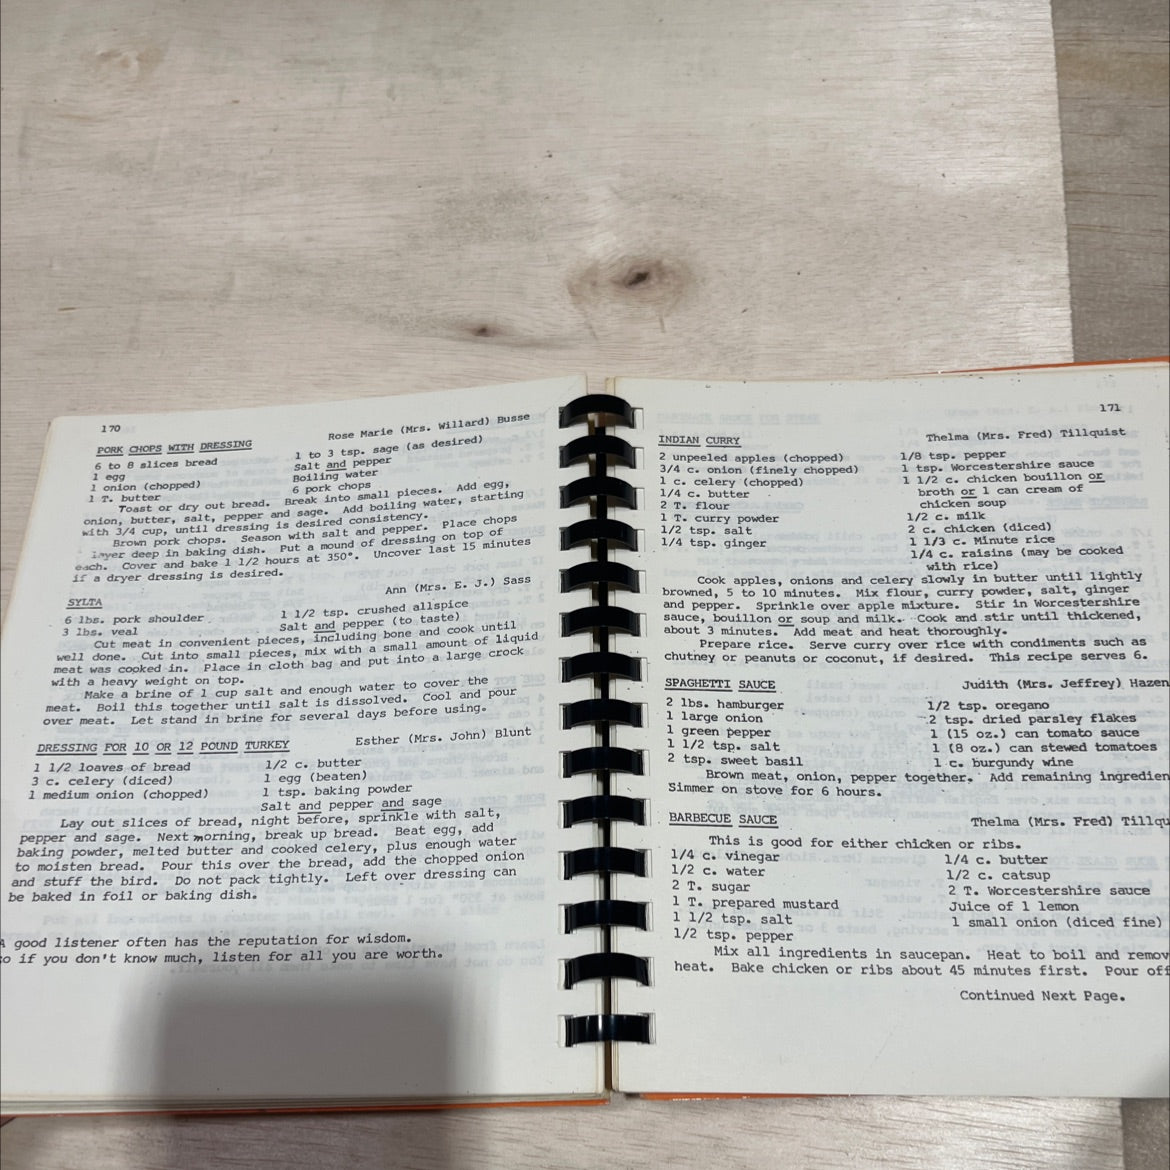 170
PORK CHOPS WITH DRESSING Rose Marie (Mrs. Willard) Busse
6 to 8 slices bread 1 to 3 tsp. sage (as desired)
1 egg Salt and pepper
1 onion (chopped) Boiling water
1 T. butter 6 pork chops
Toast or dry out bread. Break into small pieces. Add egg,
onion, butter, salt, pepper and sage. Add boiling water, starting
with 3/4 cup, until dressing is desired consistency.
Brown pork chops. Season with salt and pepper. Place chops
layer deep in baking dish. Put a mound of dressing on top of
each. Cover and bake 1 1/2 hours at 350°. Uncover last 15 minutes
if a dryer dressing is desired.
SYLTA Ann (Mrs. E. J.) Sass
6 lbs. pork shoulder 1 1/2 tsp. crushed allspice
3 lbs. veal Salt and pepper (to taste)
Cut meat in convenient pieces, including bone and cook until
well done. Cut into small pieces, mix with a small amount of liquid
meat was cooked in. Place in cloth bag and put into a large crock
with a heavy weight on top.
Make a brine of 1 cup salt and enough water to cover the
meat. Boil this together until salt is dissolved. Cool and pour
over meat. Let stand in brine for several days before using.
DRESSING FOR 10 OR 12 POUND TURKEY Esther (Mrs. John) Blunt
1 1/2 loaves of bread 1/2 c. butter
3 c. celery (diced) 1 egg (beaten)
1 medium onion (chopped) 1 tsp. baking powder
Salt and pepper and sage
Lay out slices of bread, night before, sprinkle with salt,
pepper and sage. Next morning, break up bread. Beat egg, add
baking powder, melted butter and cooked celery, plus enough water
to moisten bread. Pour this over the bread, add the chopped onion
and stuff the bird. Do not pack tightly. Left over dressing can
be baked in foil or baking dish.
A good listener often has the reputation for wisdom.
so if you don't know much, listen for all you are worth.
171
INDIAN CURRY Thelma (Mrs. Fred) Tillquist
2 unpeeled apples (chopped) 1/8 tsp. pepper
3/4 c. onion (finely chopped) 1 tsp. Worcestershire sauce
1 c. celery (chopped) 1 1/2 c. chicken bouillon or
1/4 c. butter broth or 1 can cream of
2 T. flour chicken soup
1 T. curry powder 1/2 c. milk
1/2 tsp. salt 2 c. chicken (diced)
1/4 tsp. ginger 1 1/3 c. Minute rice
1/4 c. raisins (may be cooked
with rice)
Cook apples, onions and celery slowly in butter until lightly
browned, 5 to 10 minutes. Mix flour, curry powder, salt, ginger
and pepper. Sprinkle over apple mixture. Stir in Worcestershire
sauce, bouillon or soup and milk. Cook and stir until thickened,
about 3 minutes. Add meat and heat thoroughly.
Prepare rice. Serve curry over rice with condiments such as
chutney or peanuts or coconut, if desired. This recipe serves 6.
SPAGHETTI SAUCE Judith (Mrs. Jeffrey) Hazen
2 lbs. hamburger 1/2 tsp. oregano
1 large onion 2 tsp. dried parsley flakes
1 green pepper 1 (15 oz.) can tomato sauce
1 1/2 tsp. salt 1 (8 oz.) can stewed tomatoes
2 tsp. sweet basil 1 c. burgundy wine
Brown meat, onion, pepper together. Add remaining ingredien
Simmer on stove for 6 hours.
BARBECUE SAUCE Thelma (Mrs. Fred) Tillqu
This is good for either chicken or ribs.
1/4 c. vinegar 1/4 c. butter
1/2 c. water 1/2 c. catsup
2 T. sugar 2 T. Worcestershire sauce
1 T. prepared mustard Juice of 1 lemon
1 1/2 tsp. salt 1 small onion (diced fine)
1/2 tsp. pepper
Mix all ingredients in saucepan. Heat to boil and remov
heat. Bake chicken or ribs about 45 minutes first. Pour off
Continued Next Page.